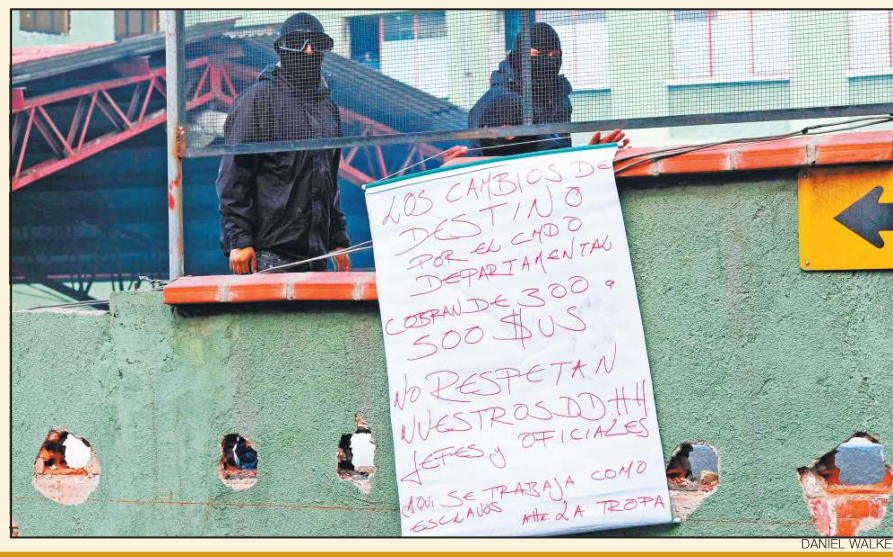 LOS CAMBIOS DE
DESTINO
POR EL CMDO
DEPARTAMENTAL
COBRAN DE 300 a
500 $US
NO RESPETAN
NUESTROS DDHH
JEFES y OFICIALES
AQUI SE TRABAJA COMO
ESCLAVOS Atte LA TROPA
DANIEL WALKE